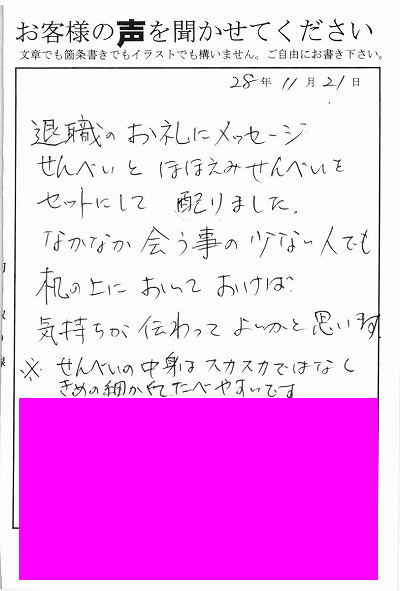 お客様の声を聞かせてください
文章でも箇条書きでもイラストでも構いません。ご自由にお書き下さい。
28年11月21日
退職のお礼にメッセージ
せんべいとほほえみせんべいを
セットにして配りました。
なかなか会う事の少ない人でも
机の上においておけば
気持ちが伝わってよいかと思います。
※せんべいの中身はスカスカではなく
きめの細かくてたべやすいです